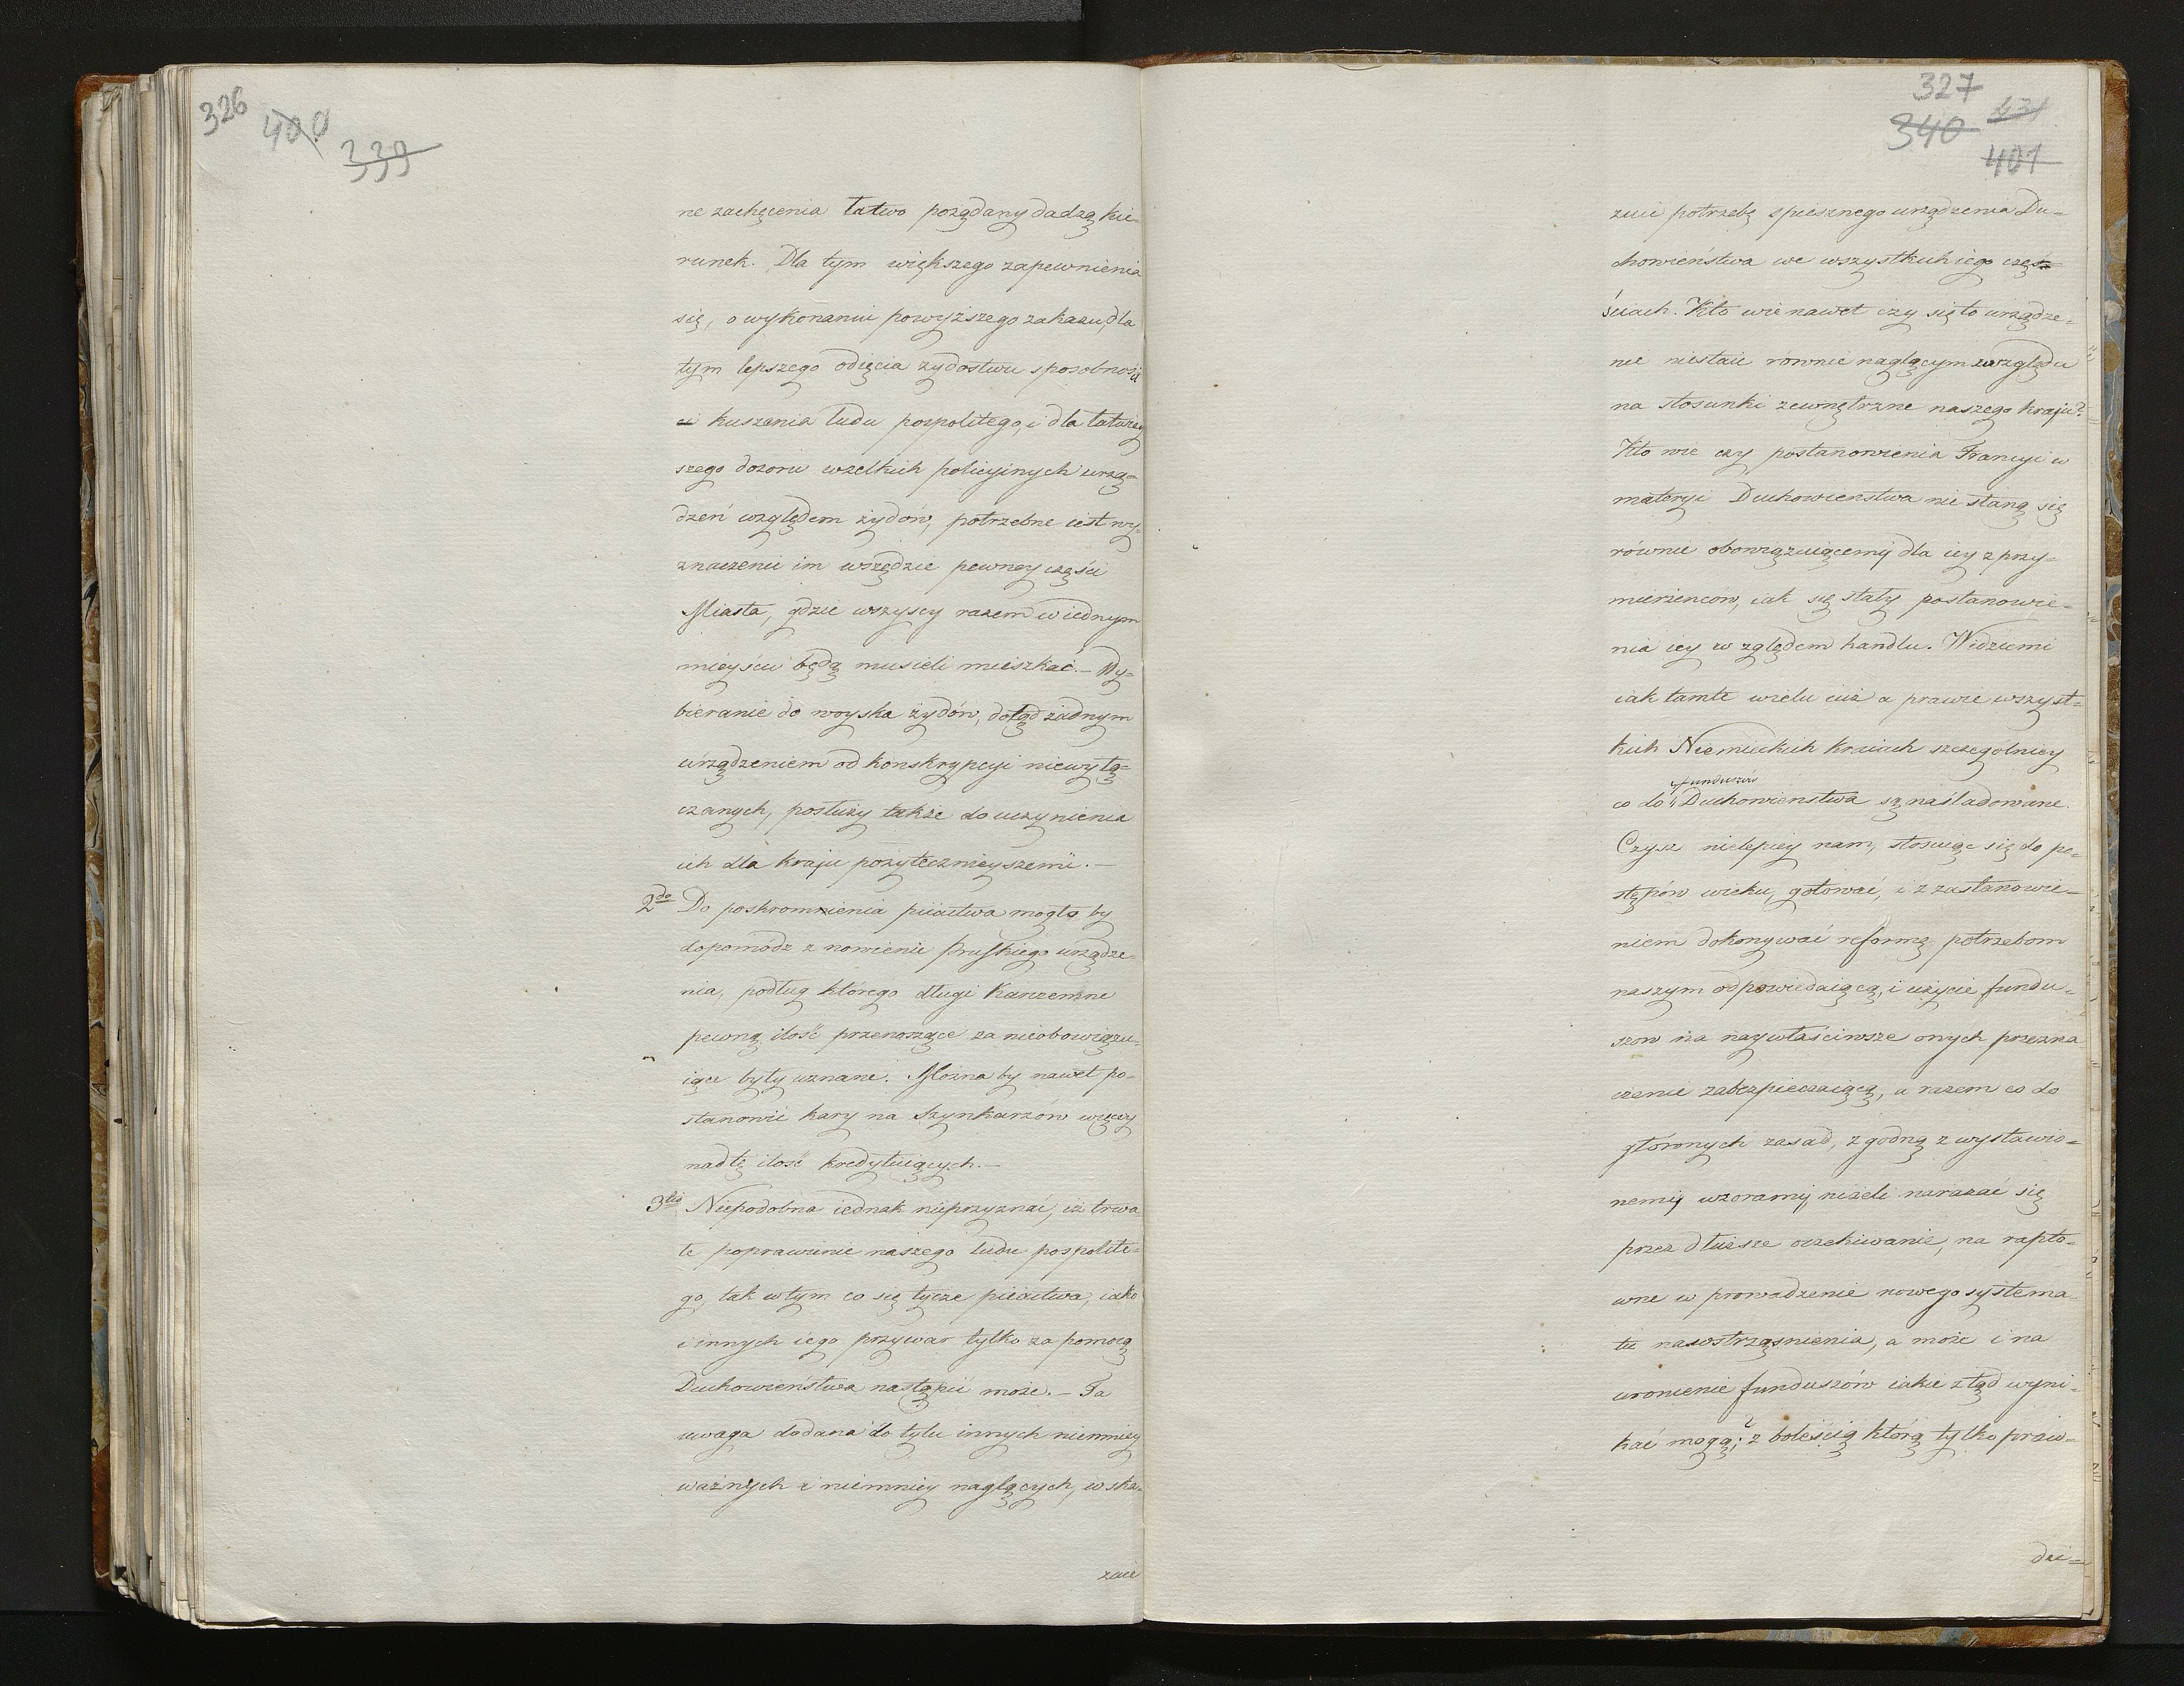 326
400
339
ne zachęcenia łatwo pożądany dadzą kie-
runek. Dla tym większego zapewnienia
się, o wykonaniu powyższego zakazu, dla
tym lepszego odięcia żydostwu sposobności
kuszenia ludu pospolitego, i dla łatwiey
szego dozoru wszelkich policyinych urzą-
dzeń względem żydów, potrzebne iest wy-
znaczenie im wszędzie pewney części
Miasta, gdzie wszyscy razem w iednym
mieyscu będą musieli mieszkać. – Wy-
bieranie do woyska żydów, dotąd żadnym
urządzeniem od konskrypcyi niewyłą-
czanych, posłuży także do uczynienia
ich dla kraju pożytecznieyszemi. –
2do Do poskromnienia piiaństwa mogło by
dopomódz z nowienie Pruskiego urządze-
nia, podług którego długi Karczemne
pewną ilość przenoszące za nieobowiązu-
iące były uznane. Można by nawet po-
stanowić kary na Szynkarzów więcey
nad tę ilość kredytuiących. –
3tio Niepodobna iednak nieprzyznać, iż trwa
łe poprawienie naszego ludu pospolite-
go, tak w tym co się tycze piiaństwa, iako
i innych iego przywar tylko za pomocą
Duchowieństwa nastąpić może. – Ta
uwaga dodana do tylu innych niemniey
ważnych i niemniey naglących, wska-
zuie
327
340 431
401
zuie potrzebę spiesznego urządzenia Du-
chowieństwa we wszystkich iego częś
ściach. Kto wie nawet czy się to urządze-
nie niestaie równie naglącym zwzględu
na stosunki zewnętrzne naszego kraju?
Kto wie czy postanowienia Francyi w
materyi Duchowienstwa nie staną się
równie obowiązuiącemi dla iey z przy-
mierzencow, iak się stały postanowie-
nia iey względem handlu. Widziemi
iak tamte wielu iuż a prawie wszyst-
kich Niemieckich kraiach szczególniey
funduszów
co do Duchowienstwa są naśladowane.
Czysz nielepiey nam, stosuiąc się do po-
stępów wieku, gotować, i z zastanowie-
niem dokonywać reformę potrzebom
naszym odpowiedaiącą, i użycie fundu-
szow na naywłaściwsze onych przezna
czenie zabezpieczaiącą, a razem co do
głównych zasad, zgodną z wystawio-
nemi wzorami, niżeli narażać się
przez dłuższe oczekiwanie, na rapto-
wne w prowadzenie nowego systema-
tu na wstrząsnienia, a może i na
uronienie funduszów iakie ztąd wyni-
kać mogą; z boleścią którą tylko praw-
dzi-